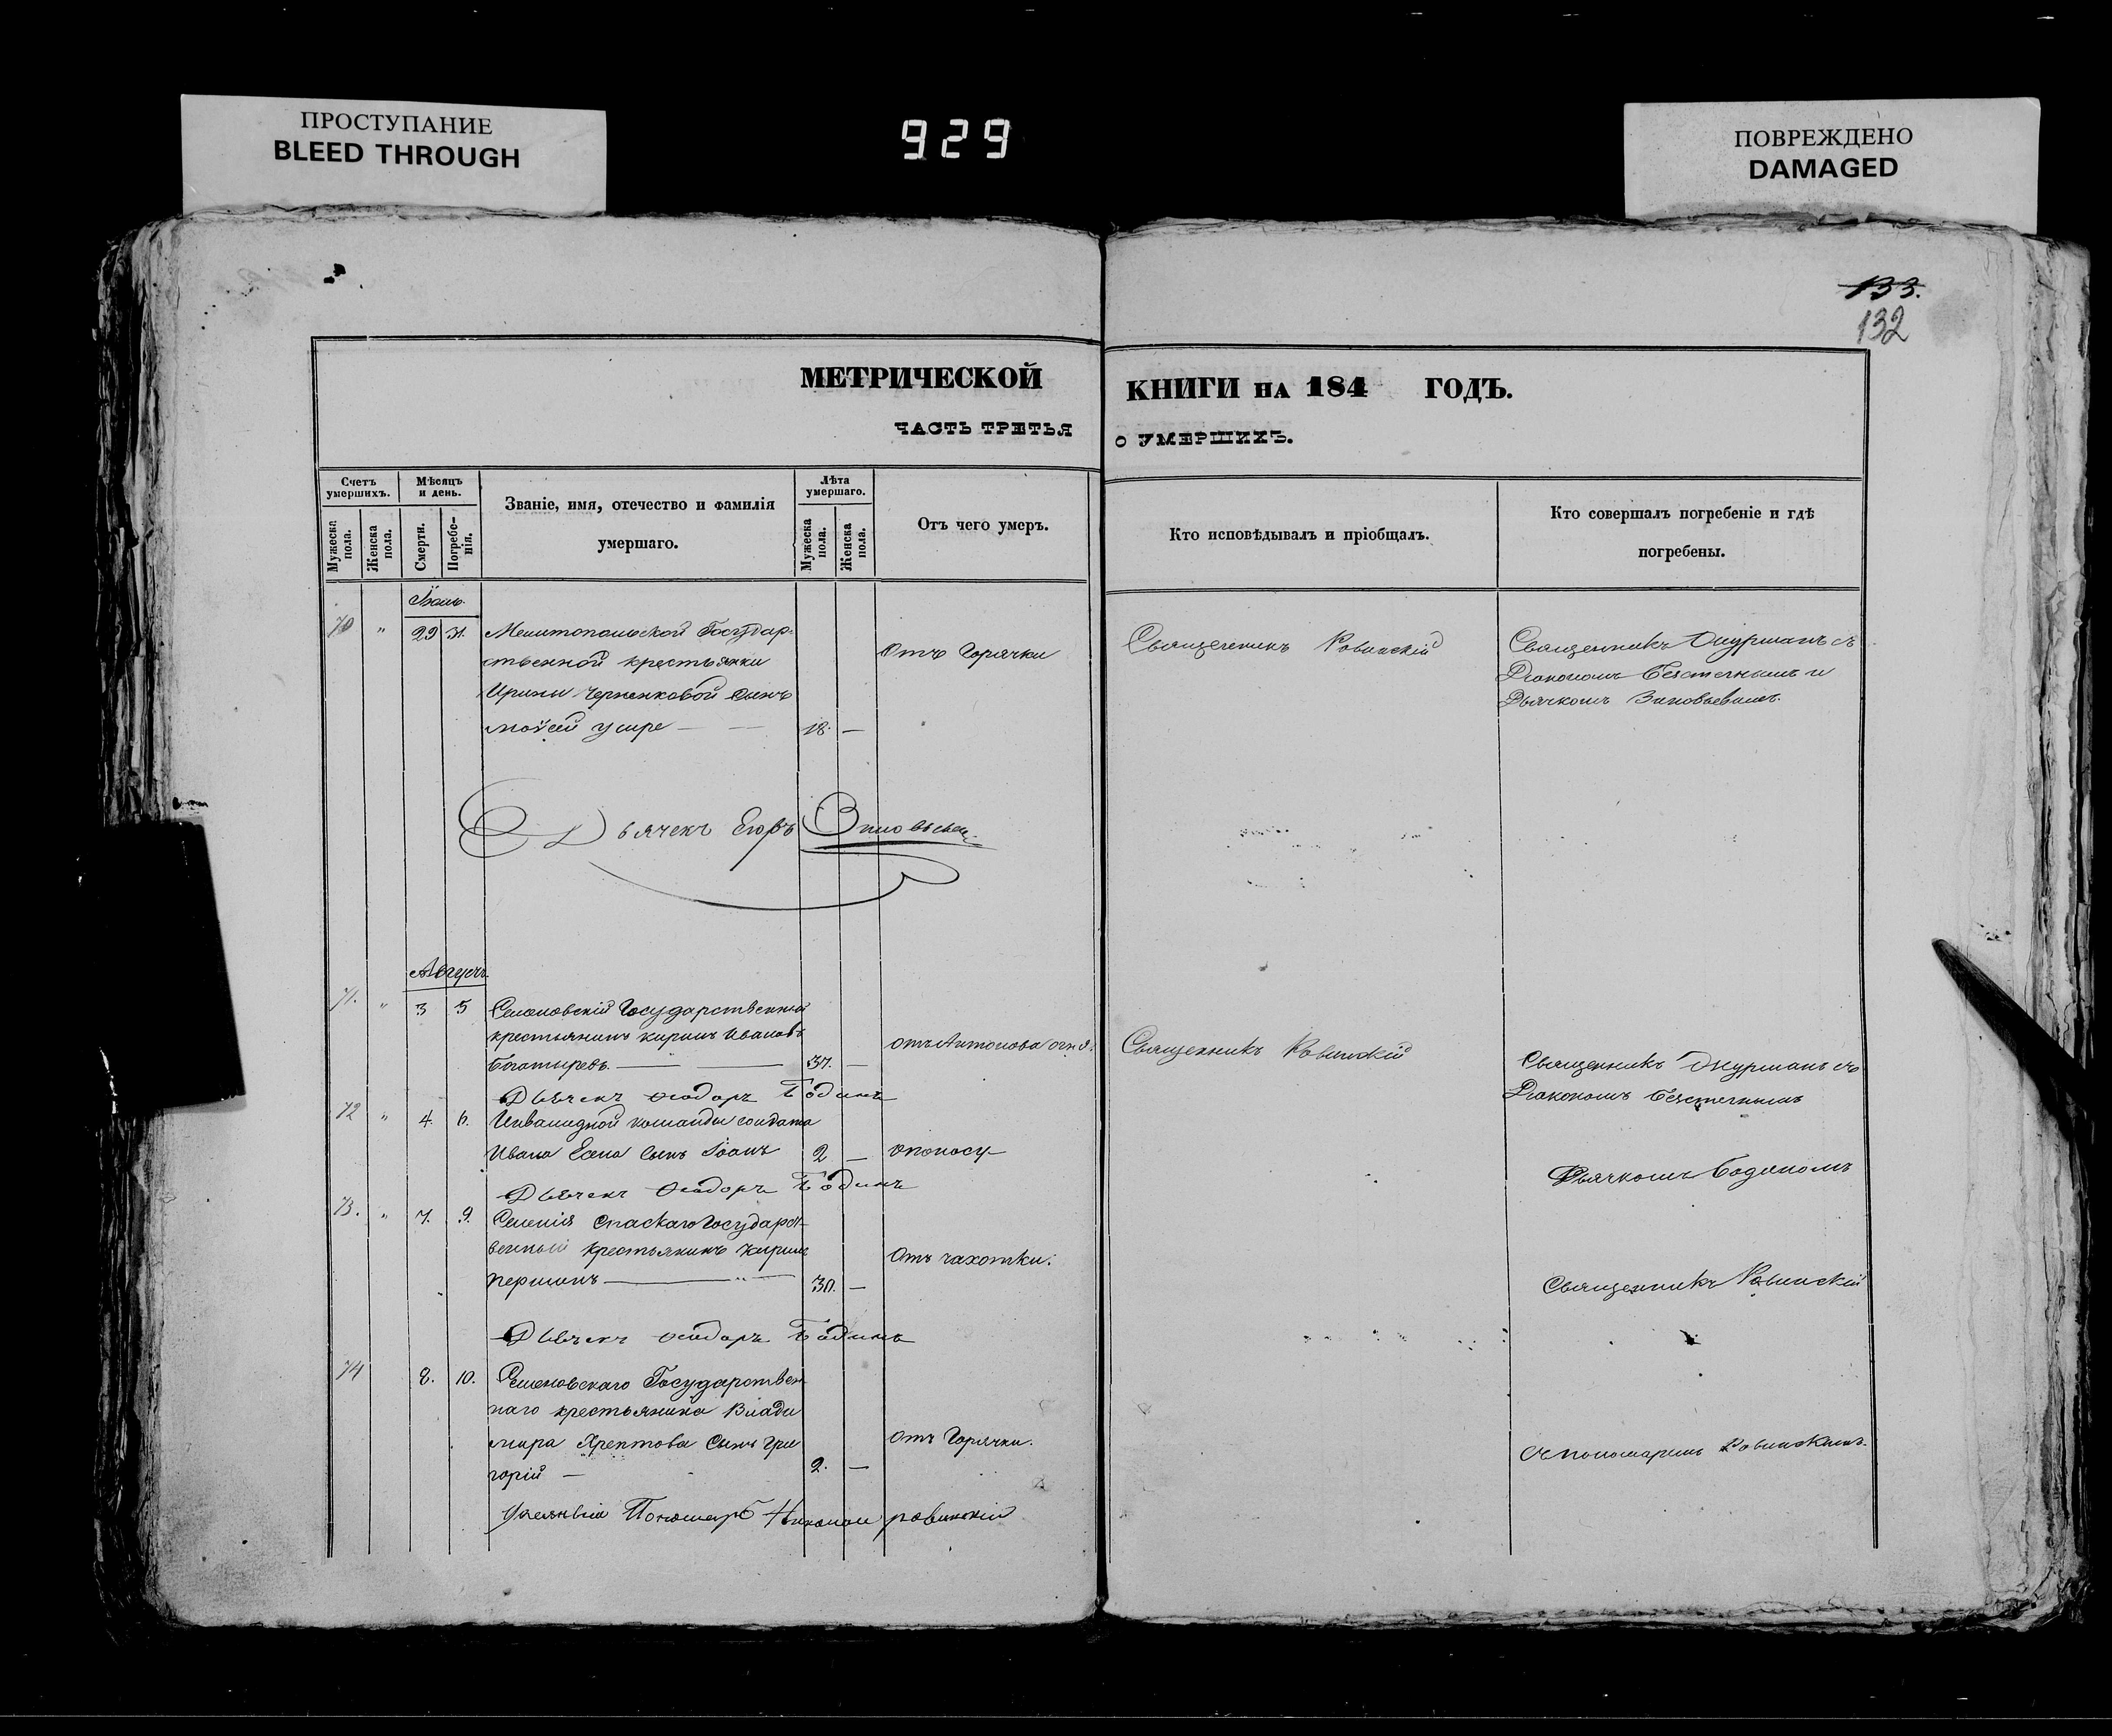 ПРОСТУПАНИЕ
BLEED THROUGH
929
ПОВРЕЖДЕНО
DAMAGED
133.
132
МЕТРИЧЕСКОЙ КНИГИ НА 184 ГОДЪ.
ЧАСТЬ ТРЕТЬЯ О УМЕРШИХЪ.
Счетъ умершихъ.
Мужеска пола.
Женска пола.
Мѣсяцъ и день.
Смерти.
Погребе-нія.
Званіе, имя, отечество и фамилія
умершаго.
Лѣта умершаго.
Мужеска пола.
Женска пола.
Отъ чего умеръ.
Кто исповѣдывалъ и пріобщалъ.
Кто совершалъ погребеніе и гдѣ
погребены.
70 " 29 31. Мелитопольской Государ-
ственной крестьянки
Ирины Черненковой сынъ
Моѵсей умре 18. —
Отъ Горячки
Священникъ Ровинскій
Священникъ съ
Діакономъ и
Дьячкомъ Зиновьевымъ.
Дьячекъ Егоръ Зиновьевъ
Августъ
71. " 3 5 Государственный
крестьянинъ Кирилъ Ивановъ
Богатыревъ. 37. —
отъ Антонова огня.
Священникъ Ровинскій
Священникъ съ
Діакономъ
Дьячекъ Ѳеодоръ
72 " 4. 6. Инвалидной команды солдата
Ивана сынъ Іоанъ 2 —
поносу
Дьячкомъ
Дьячекъ Ѳеодоръ
73. " 7. 9. Селенія Спаскаго Государст-
венный крестьянинъ Кирилъ
Першинъ 30. —
Отъ чахотки.
Священникъ Ровинскій
Дьячекъ Ѳеодоръ
74 8. 10. Государствен
наго крестьянина Влади
мира сынъ Гри
горій — 2. —
отъ Горячки.
съ пономаремъ Ровинскимъ.
Пономарь Николай Ровинскій